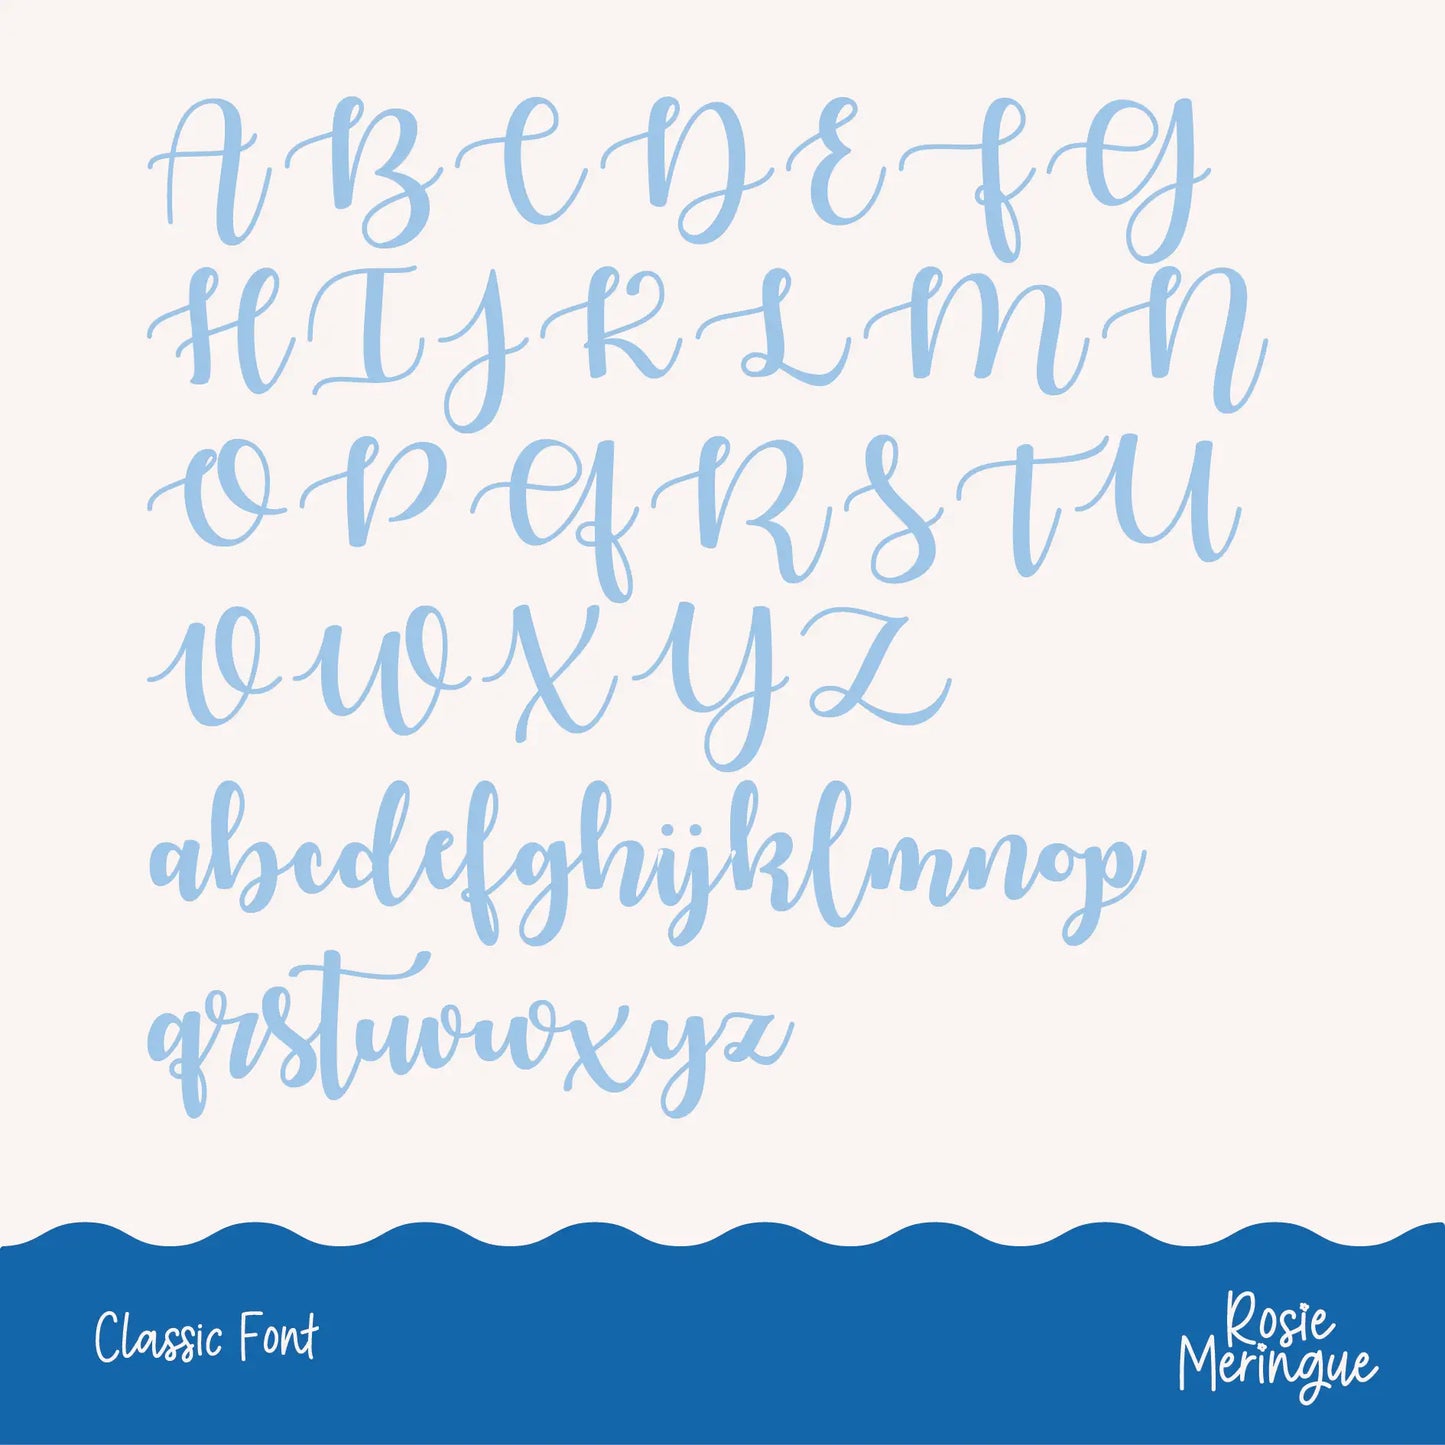 A B C D E F G
H I J K L M N
O P Q R S T U
V W X Y Z
abcdefghijklmnop
qrstuvwxyz
Classic Font
Rosie
Meringue